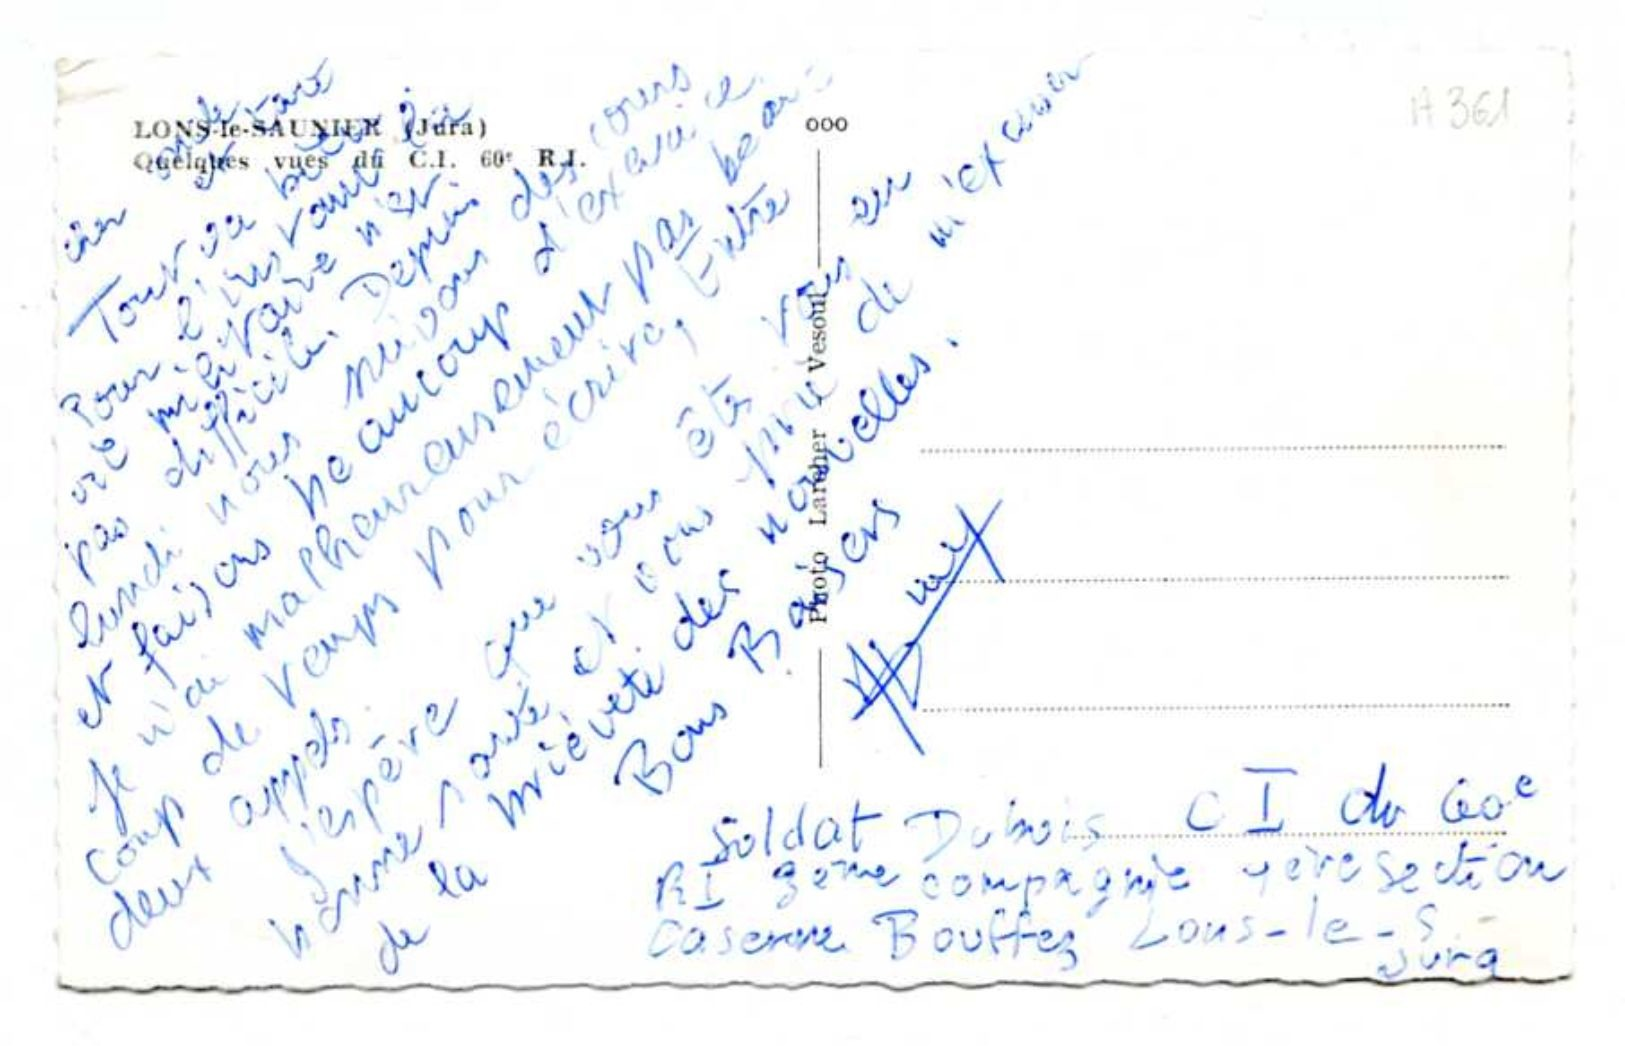 LONS-le-SAUNIER (Jura)
Quelques vues du C.I. 60e R.I.
ooo
A 361
Photo Larcher Vesoul
cher oncle et
Tout va bien
Pour l'instant la
vie militaire n'est
pas difficile. Depuis
lundi nous suivons des cours
et faisons beaucoup d'exercice.
Je n'ai malheureusement pas beau
coup de temps pour écrire, Entre
deux appels.
J'espère que vous êtes tous en
bonne santé et vous prie de m'excuser
de la brièveté des nouvelles.
Bons Baisers
Soldat Dubois CI du 60e
RI 3ème compagnie 1ère section
Caserne Bouffez Lons-le-S-
Jura